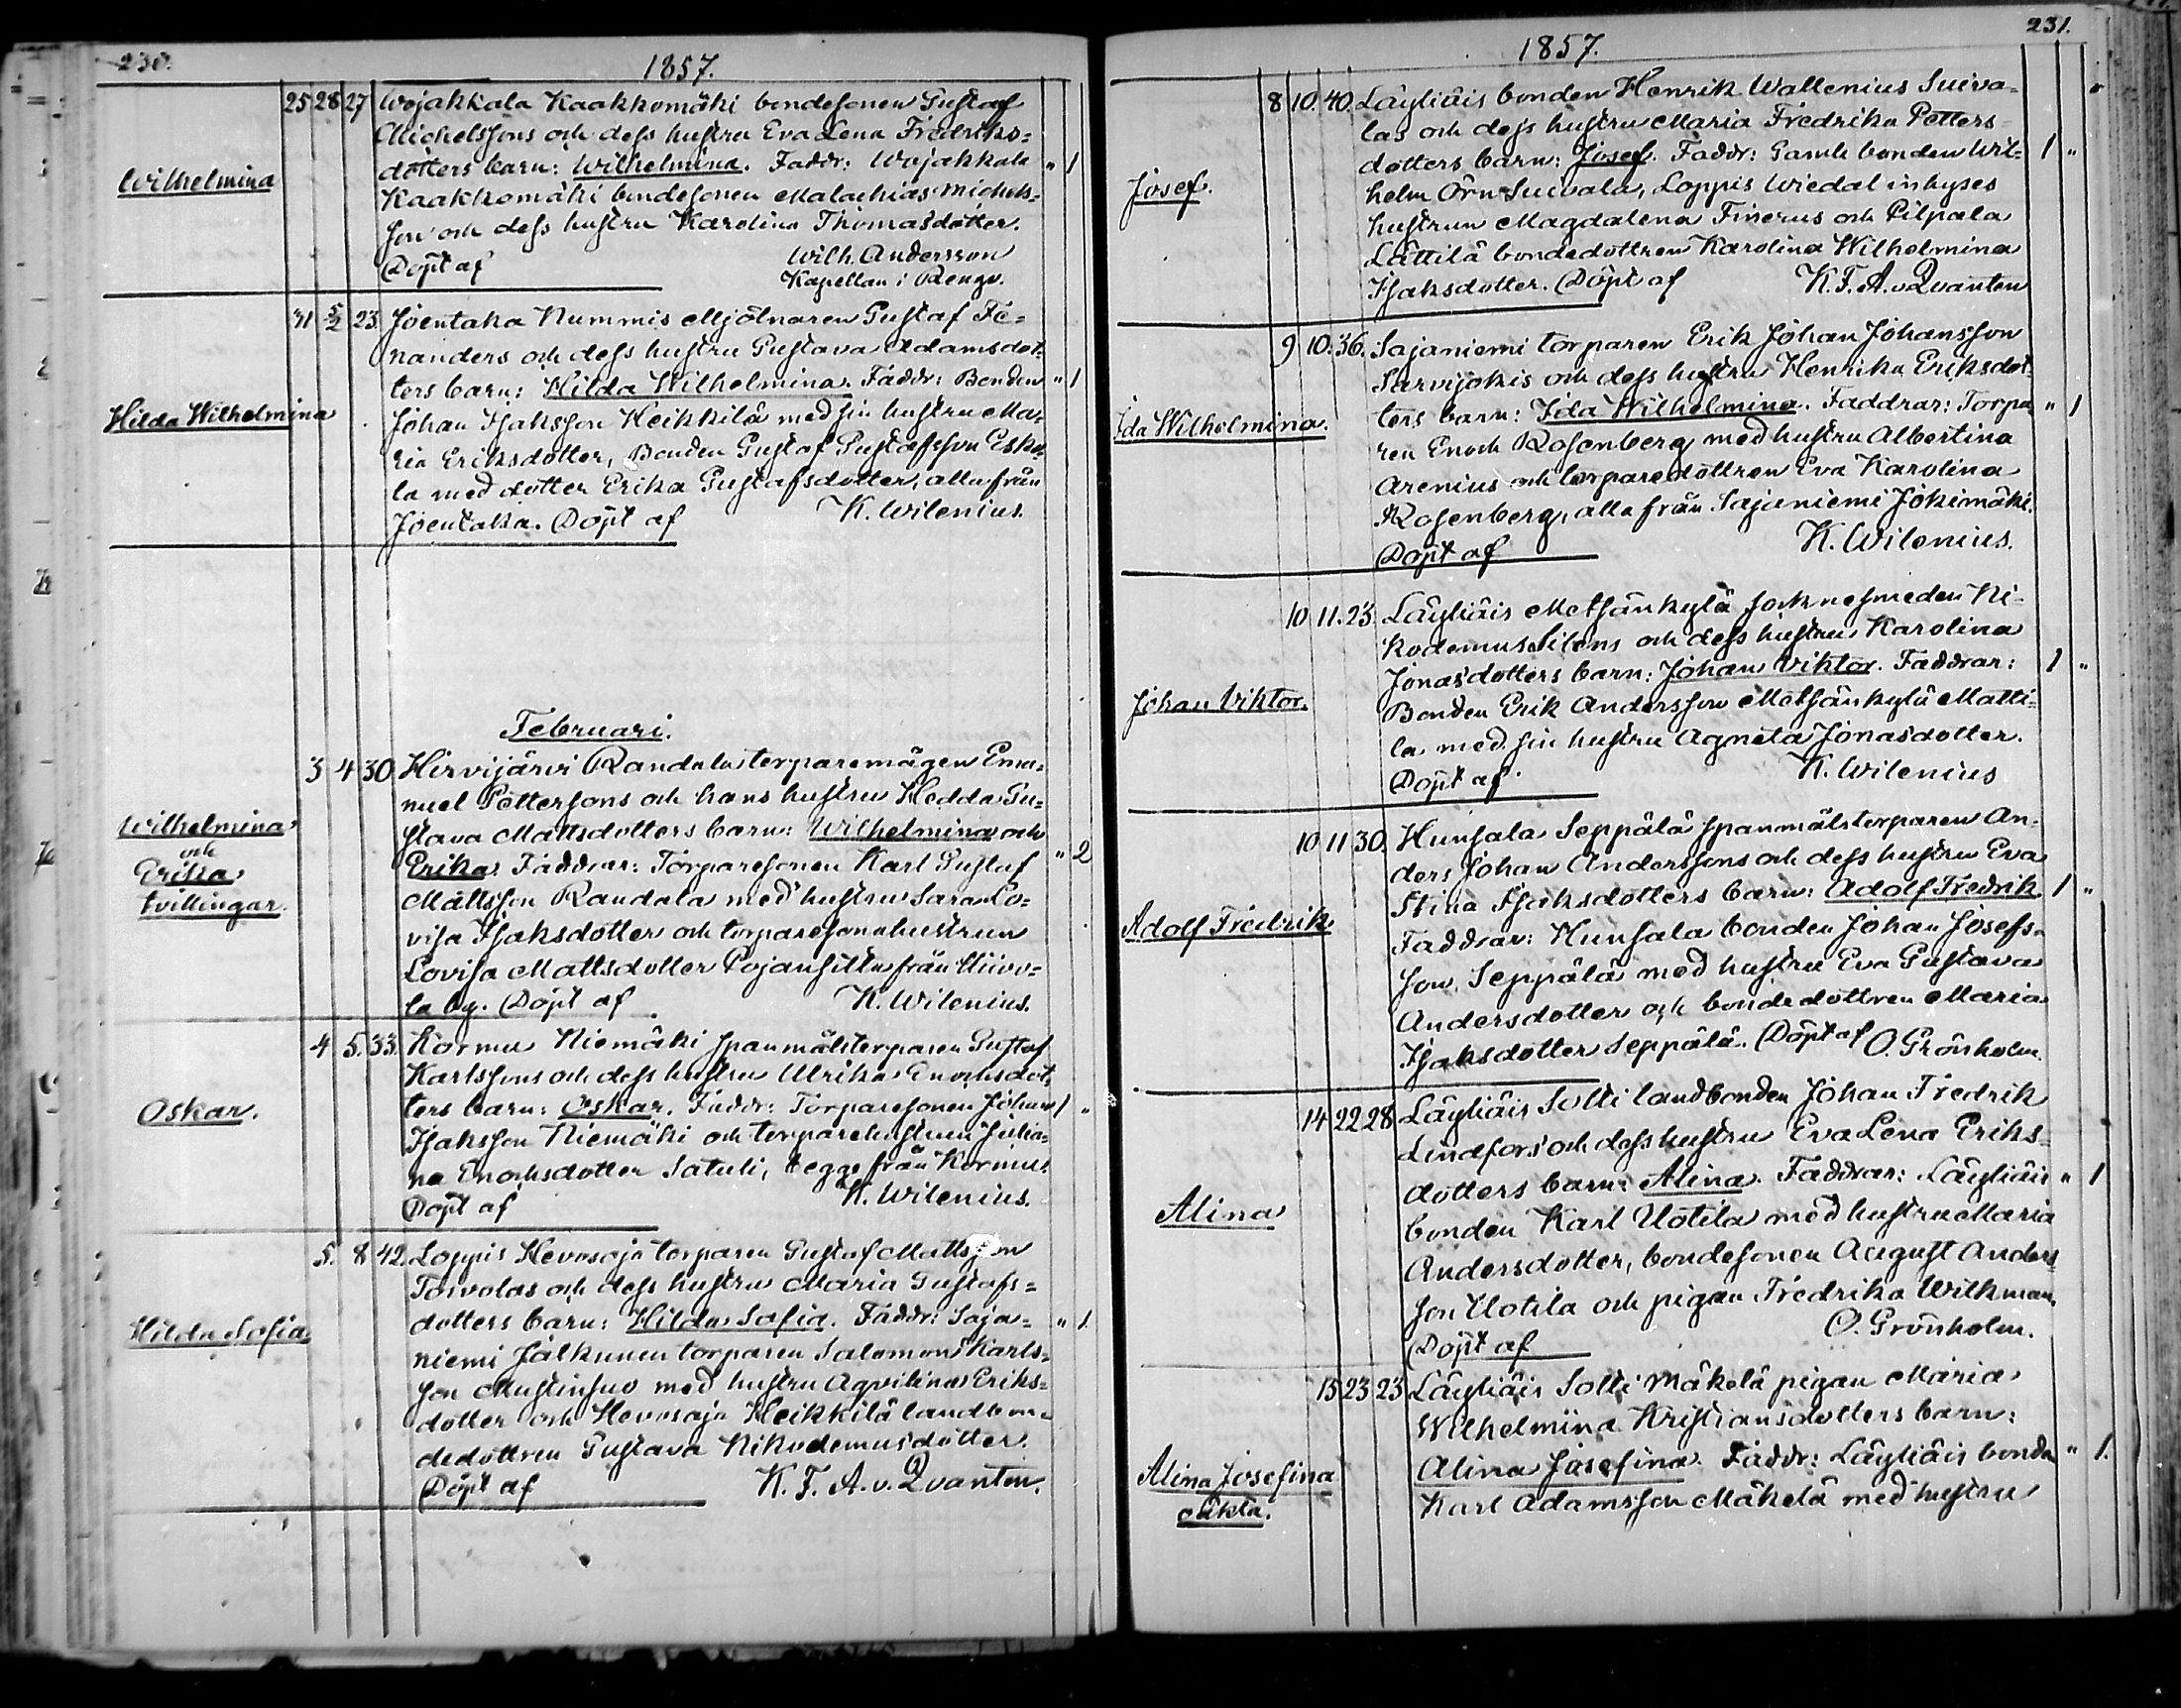 230.
1857.
Wilhelmina
25 28 27 Wojakkala Kaakkomäki bondesonen Gustaf
Michelssons och dess hustru Eva Lena Fredriks=
dotters barn: Wilhelmina. Faddr: Wojakkala " 1
Kaakkomäki bondesonen Malachias Michels=
son och dess hustru Karolina Thomasdotter.
Döpt af Wilh. Andersson
Kapellan i Rengo.
Hilda Wilhelmina
31 5/2 23. Joentaka Nummis Mjölnaren Gustaf Fe=
nanders och dess hustru Gustava Adamsdot=
ters barn: Hilda Wilhelmina. Faddr: Bonden " 1
Johan Isaksson Heikkilä med sin hustru Ma=
ria Eriksdotter, Bonden Gustaf Gustafsson Esko=
la med dotter Erika Gustafsdotter, alla från
Joentaka. Döpt af K. Wilenius.
Februari.
Wilhelmina
och
Erika
tvillingar.
3 4 30 Hirvijärvi Randala torparemågen Ema=
nuel Pettersons och hans hustru Hedda Gu=
stava Mattsdotters barn: Wilhelmina och
Erika. Faddrar: Torparesonen Karl Gustaf " 2
Mattsson Randala med hustru Sara Lo=
visa Isaksdotter och torparesonahustrun
Lovisa Mattsdotter Pojansilta från
la by. Döpt af K. Wilenius.
Oskar.
4 5. 33. Kormu Niemäki spanmålstorparen Gustaf
Karlssons och dess hustru Ulrika Enochsdot=
ters barn: Oskar. Faddr: Torparesonen Johan 1 "
Isaksson Niemäki och torparehustrun Julia=
na Enochsdotter Satuli, begge från Kormu.
Döpt af K. Wilenius.
Hilda Sofia.
5. 8 42. Loppis Hevosoja torparen Gustaf Mattsson
Toivolas och dess hustru Maria Gustafs=
dotters barn: Hilda Sofia. Faddr: Saja= " 1.
niemi Jalkunen torparen Salomon Karls=
son Mustinsuo med hustru Aqvilina Eriks=
dotter och Hevosoja Heikkilä landbon=
dedottren Gustava Nikodemusdotter.
Döpt af K. F. A. v. Qvanten.
231.
1857.
Josef.
8 10. 40. Läyliäis bonden Henrik Wallenius Suiva=
las och dess hustru Maria Fredrika Petters=
dotters barn: Josef. Faddr: Gamle bonden Wil= 1 "
helm Örn Suivala, Loppis Wiedal inhyses
hustrun Magdalena Finerus och Pilpala
Lättilä bondedottren Karolina Wilhelmina
Isaksdotter. Döpt af K. F. A. v. Qvanten
Ida Wilhelmina.
9 10. 36. Sajaniemi torparen Erik Johan Johansson
Sarvijokis och dess hustru Henrika Eriksdot=
ters barn: Ida Wilhelmina. Faddrar: Torpa= " 1
ren Enoch Rosenberg med hustru Albertina
Arenius och torparedottren Eva Karolina
Rosenberg, alla från Sajaniemi Jokimäki.
Döpt af K. Wilenius.
Johan Viktor.
10 11. 23. Läyliäis Metsänkylä socknesmeden Ni=
kodemus Silens och dess hustru Karolina
Jonasdotters barn: Johan Viktor. Faddrar: 1 "
Bonden Erik Andersson Metsänkylä Matti=
la med sin hustru Agneta Jonasdotter.
Döpt af K. Wilenius
Adolf Fredrik
10 11 30. Hunsala Seppälä spanmålstorparen An=
ders Johan Anderssons och dess hustru Eva
Stina Isaksdotters barn: Adolf Fredrik 1 "
Faddrar: Hunsala bonden Johan Josefs=
son Seppälä med hustru Eva Gustava
Andersdotter och bondedottren Maria
Isaksdotter Seppälä. Döpt af O. Grönholm.
Alina
14 22 28 Läyliäis Solti landbonden Johan Fredrik
Lindfors och dess hustru Eva Lena Eriks=
dotters barn: Alina. Faddrar: Läyliäis " 1
bonden Karl Uotila med hustru Maria
Andersdotter, bondesonen August Anders=
son Uotila och pigan Fredrika Wilkman.
Döpt af O. Grönholm.
Alina Josefina
oäkta.
15 23 23 Läyliäis Solti Mäkelä pigan Maria
Wilhelmina Kristiansdotters barn:
Alina Josefina. Faddr: Läyliäis bonden " 1.
Karl Adamsson Mäkelä med hustru